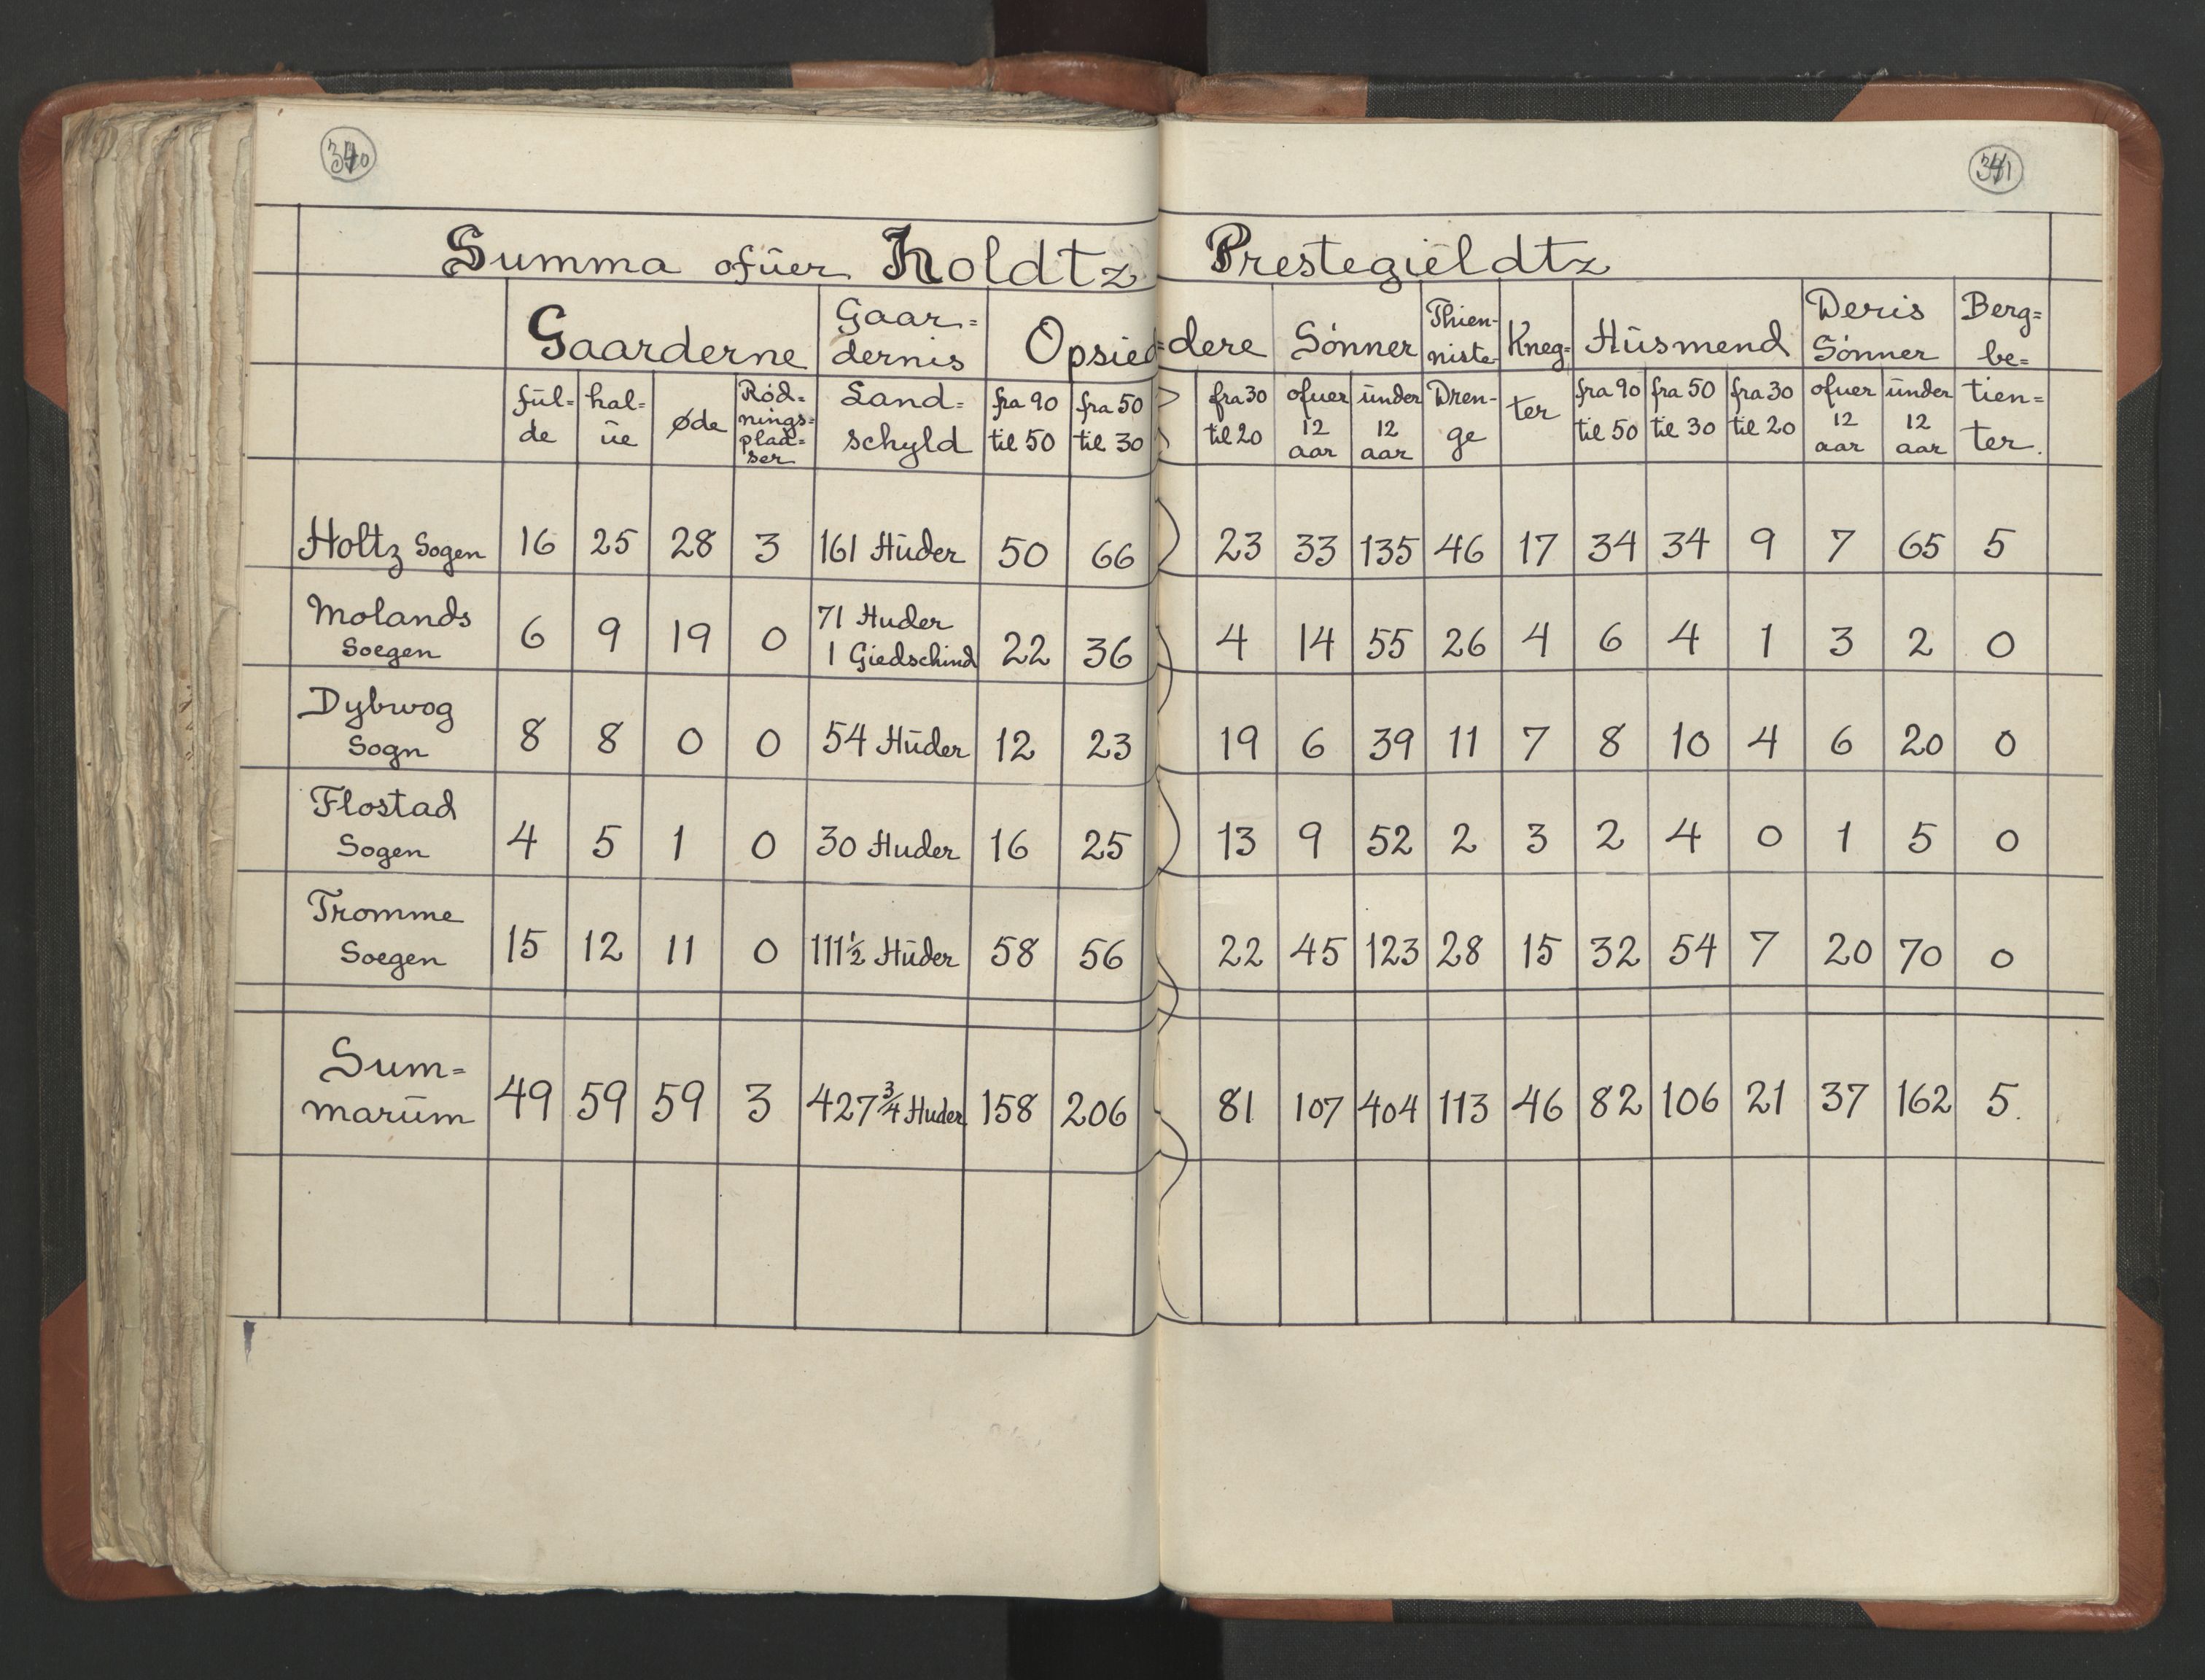 340
341
Summa ofüer Holdtz Prestegieldtz
Gaarderne Gaar= dernis Opsied=dere Sönner Thien- niste- Kneg= Hüsmend Deris Sönner Berg= be=
fül= de hal= üe øde Röd= nings= plad= ser Land= schyld fra 90 til 50 fra 50 til 30 fra 30 til 20 ofuer 12 aar ünder 12 aar Dren- ge ter fra 90 til 50 fra 50 til 30 fra 30 til 20 ofuer 12 aar ünder 12 aar tien= ter.
Holtz Sogen 16 25 28 3 161 Hüder 50 66 23 33 135 46 17 34 34 9 7 65 5
Molands Soegen 6 9 19 0 71 Huder 1 Giedschind 22 36 4 14 55 26 4 6 4 1 3 2 0
Dybwog Sogn 8 8 0 0 54 Hüder 12 23 19 6 39 11 7 8 10 4 6 20 0
Flostad Sogen 4 5 1 0 30 Huder 16 25 13 9 52 2 3 2 4 0 1 5 0
Tromme Soegen 15 12 11 0 111½ Hüder 58 56 22 45 123 28 15 32 54 7 20 70 0
Sum= marüm 49 59 59 3 427¾ Huder 158 206 81 107 404 113 46 82 106 21 37 162 5.